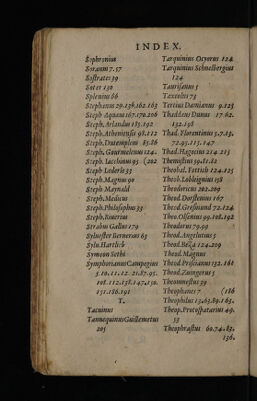 INDEX.
Sophronius
Soranus 7. 57
Sostrates 39
Soter 130
Splenius 86
Stephanus 29.138.162.163
Steph Aquaeus 167.170.206
Steph. Arlandus 185.192
Steph. Atheniensis 98.112
Steph. Dutempleus 85.86
Steph. Gourmelenus 124.
Steph. Iacchinus 95 (202
Steph Loderis 33
Steph. Magnus 90
Steph Maynald
Steph. Medicus
Steph. Philosophus 33
Steph. Roverius
Strabus Gallus 179
Sylvester Berneras 63
Sylv. Hartlieb
Symeon Sethi
Symphorianus Campegius
5.10.11.12.21.87.95.
108.112.138.147.150.
151.186.191
T.
Tacuinus
Tannequinus Guillemetus
205
Tarquinius Ocyorus 124
Tarquinius Schnelbergius
124
Taurisanus 5
Taxonius 75
Tertius Damianus 9.123
Thaddeus Dunus 17.62.
192.198
Thad. Florentinus 5.7.13.
72.93.115.147
Thad. Hagecius 214.215
Themistius 59.81.82
Theobal. Fettich 124.125
Theob. Lobleignus 198
Theodoricus 202.209
Theod. Dorstenius 167
Theod. Gresmund 124
Theo. Ulsenius 99.108.192
Theodorus 79.99
Theod. Angelutus 5
Theod. Beza 124.209
Theod. Magnus
Theod. Priscianus 132.161
Theod. Zuingerus 5
Theomnestus 39
Theophanes 7 (186
Theophilus 13.63.89.165.
Theop. Protospatarius 49.
53
Theophrastus 60.74.82.
136.